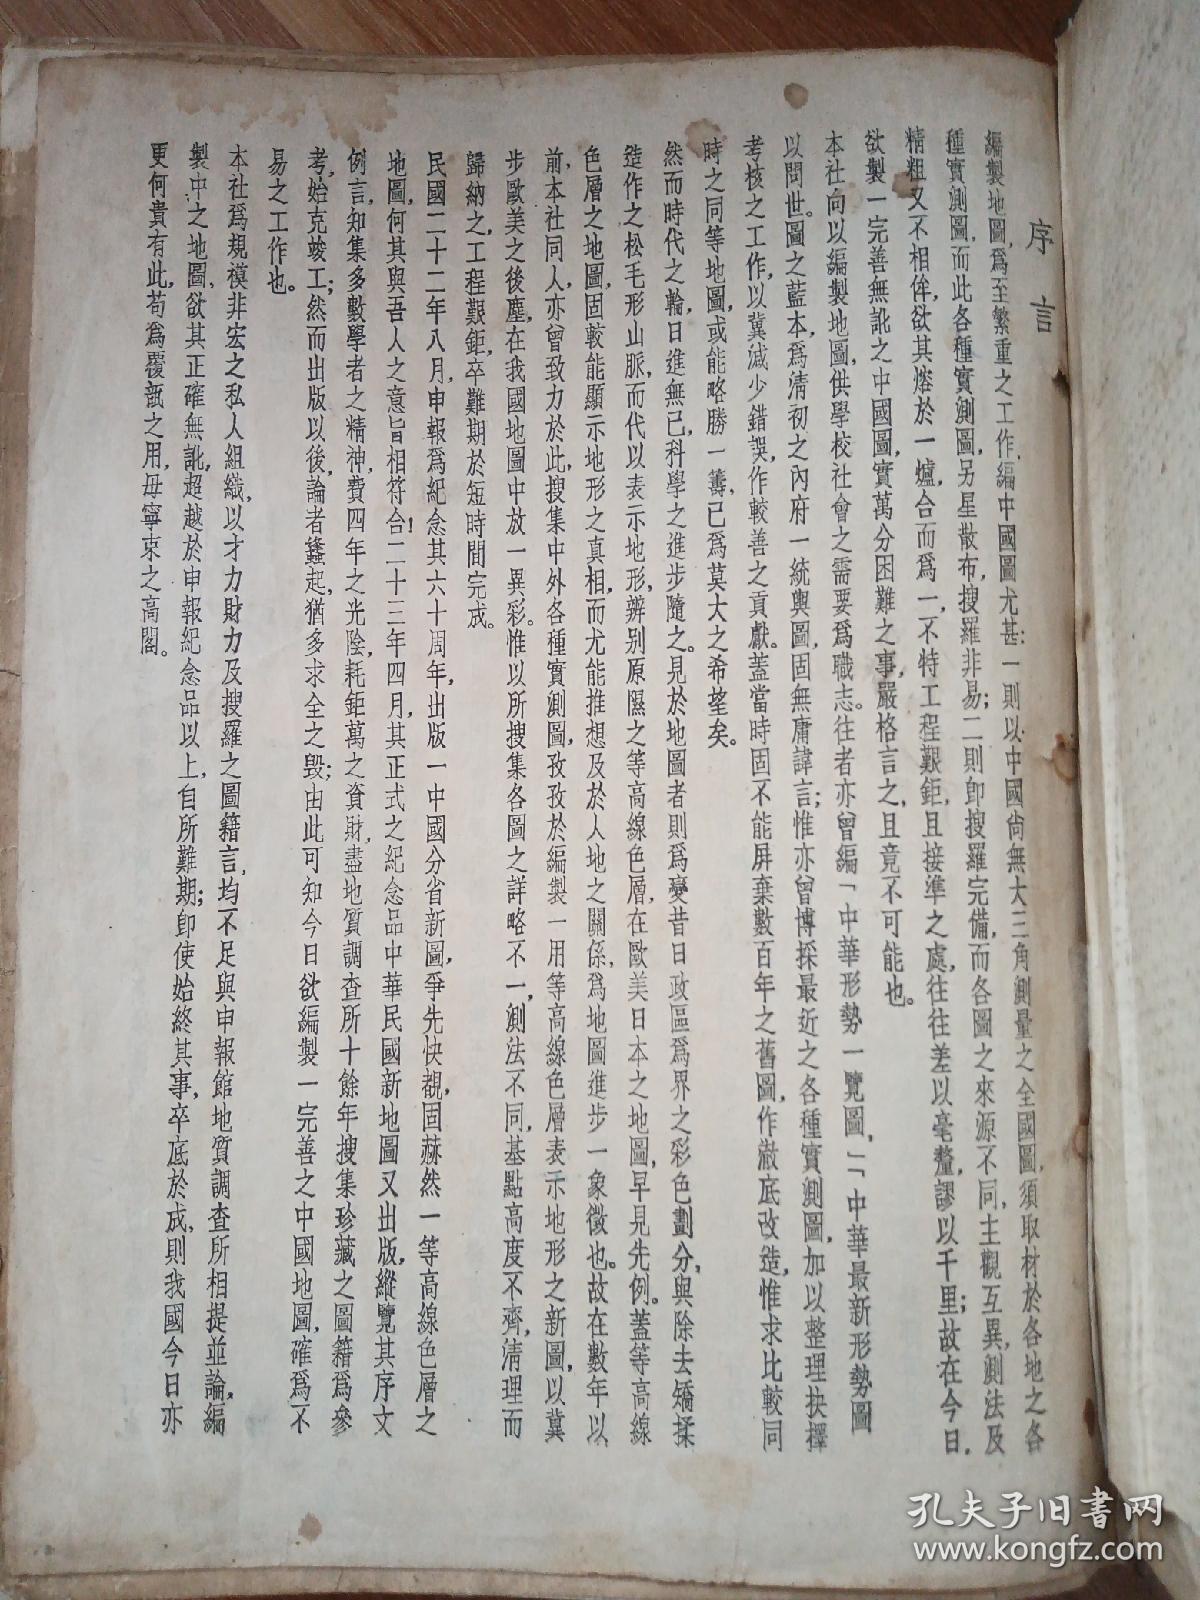 序言
編製地圖，爲至繁重之工作，編中國圖尤甚：一則以中國尙無大三角測量之全國圖，須取材於各地之各
種實測圖，而此各種實測圖，另星散布，搜羅非易；二則卽搜羅完備，而各圖之來源不同，主觀互異，測法及
精粗又不相侔，欲其熔於一爐，合而爲一，不特工程艱鉅，且接準之處，往往差以毫釐，謬以千里；故在今日，
欲製一完善無訛之中國圖，實萬分困難之事，嚴格言之，且竟不可能也。
本社向以編製地圖，供學校社會之需要爲職志。往者亦曾編「中華形勢一覽圖，」「中華最新形勢圖
以問世。圖之藍本，爲淸初之內府一統輿圖，固無庸諱言；惟亦曾博採最近之各種實測圖，加以整理抉擇
考核之工作，以冀減少錯誤，作較善之貢獻。蓋當時固不能屏棄數百年之舊圖，作澈底改造，惟求比較同
時之同等地圖，或能略勝一籌，已爲莫大之希望矣。
然而時代之輪，日進無已，科學之進步隨之。見於地圖者則爲變昔日政區爲界之彩色劃分，與除去矯揉
造作之松毛形山脈，而代以表示地形，辨别原隰之等高線色層，在歐美日本之地圖，早見先例。蓋等高線
色層之地圖，固較能顯示地形之真相，而尤能推想及於人地之關係，爲地圖進步一象徵也。故在數年以
前，本社同人，亦曾致力於此，搜集中外各種實測圖，孜孜於編製一用等高線色層表示地形之新圖，以冀
步歐美之後塵，在我國地圖中放一異彩。惟以所搜集各圖之詳略不一，測法不同，基點高度不齊，淸理而
歸納之，工程艱鉅，卒難期於短時間完成。
民國二十二年八月，申報爲紀念其六十周年，出版一中國分省新圖，爭先快覩，固赫然一等高線色層之
地圖，何其與吾人之意旨相符合！二十三年四月，其正式之紀念品中華民國新地圖又出版，縱覽其序文
例言，知集多數學者之精神，費四年之光陰，耗鉅萬之資財，盡地質調查所十餘年搜集珍藏之圖籍爲參
考，始克竣工；然而出版以後，論者蠭起，猶多求全之毀；由此可知今日欲編製一完善之中國地圖，確爲不
易之工作也。
本社爲規模非宏之私人組織，以才力財力及搜羅之圖籍言，均不足與申報館地質調查所相提並論，編
製中之地圖，欲其正確無訛，超越於申報紀念品以上，自所難期；卽使始終其事，卒底於成，則我國今日亦
更何貴有此，苟爲覆瓿之用，毋寧束之高閣。
孔夫子旧書网
www.kongfz.com